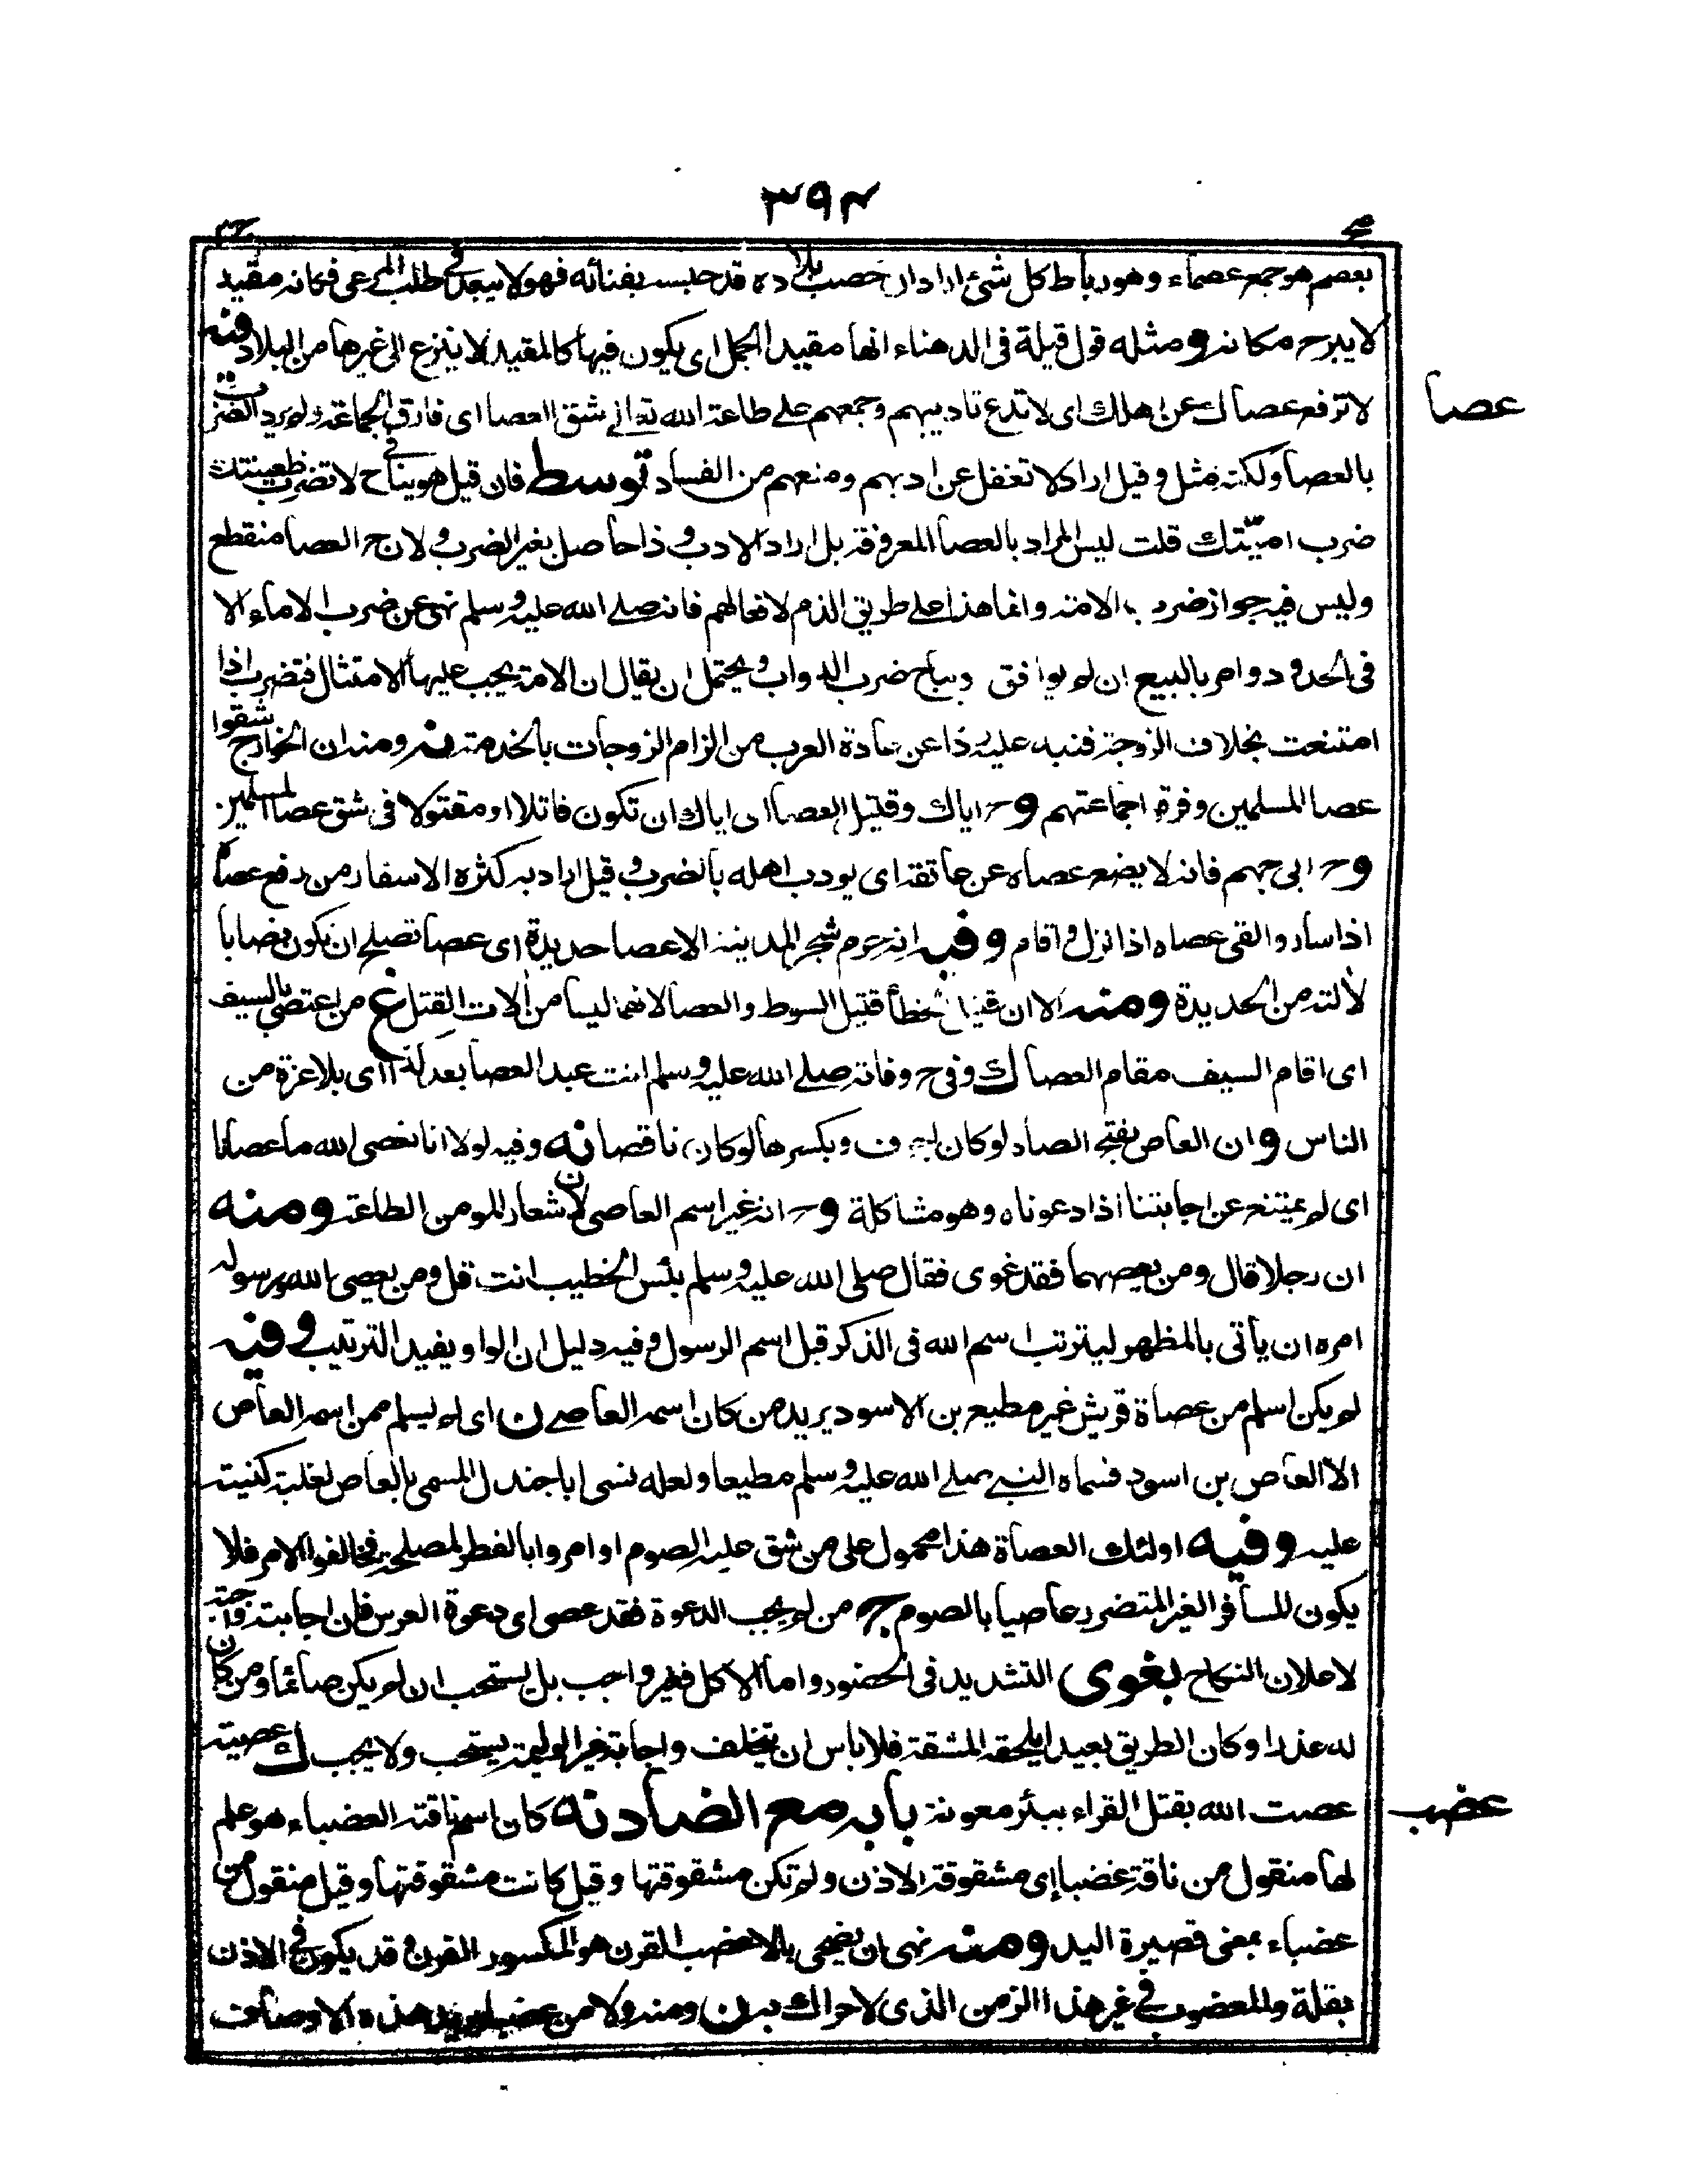 ٣٩٤
بعصم هو جمع عصماء وهو رباط كل شئ اراد ان خصب بلاده قد حلبسه بفنائه فهو لا يبعد في طلب المرعى فكانه مقيد
لا يبرح مكانه ومثله قول قيلة فى الدهناء انها مقيد الجمل اى يكون فيها كالمقيد لا ينزع الى غيرها من البلاد وفيه
عصا
لا ترفع عصاك عن اهلك اى لا تدع تاديبهم وجمعهم على طاعة الله تعالى شق العصا اى فارق الجماعة ولم يرد الضرب
بالعصا ولكنه مثل وقيل اراد لا تغفل عن ادبهم ومنعهم من الفساد توسط فان قيل هو ينافى ح لا تضرب ظعينتك
ضرب اميتك قلت ليس المراد بالعصا المعروفة بل اراد الادب وذا حاصل بغير الضرب ولان ح العصا منقطع
وليس فيه جواز ضرب الامة وانما هذا على طريق الذم لافعالهم فانه صلى الله عليه وسلم نهى عن ضرب الاماء الا
فى الحدود وامر بالبيع ان لم يوافق ويباح ضرب الدواب ويحتمل ان يقال ان الامة يجب عليها الامتثال فتضرب اذا
امتنعت بخلاف الزوجة فنبه عليه وذا عن عادة العرب من الزام الزوجات بالخدمة نه ومنه ان الخوارج شقوا
عصا المسلمين وفرقوا جماعتهم وح اياك وقتيل العصا اى اياك ان تكون قاتلا او مقتولا فى شق عصا المسلمين
وح ابى جهم فانه لا يضع عصاه عن عاتقه اى يودب اهله بالضرب وقيل اراد به كثرة الاسفار من رفع عصاه
اذا سار والقى عصاه اذا نزل واقام وفيه انه حرم شجر المدينة الا عصا حديدة اى عصا تصلح ان تكون نصابا
لآلة من الحديدة ومنه الا ان قتيل الخطأ قتيل السوط والعصا لانهما ليسا من آلات القتل غ من اعتصى بالسيف
اى اقام السيف مقام العصا ك وفى ح وفاته صلى الله عليه وسلم انت عبد العصا بعد ثلاث اى بلا عزة من
الناس وان العاص بفتح الصاد لو كان اجوف وبكسرها لو كان ناقصا نه وفيه لولا انا نعصى الله ما عصانا
اى لم يمتنع عن اجابتنا اذا دعوناه وهو مشاكلة وح انه غير اسم العاصى لان شعار المومن الطاعة ومنه
ان رجلا قال ومن يعصهما فقد غوى فقال صلى الله عليه وسلم بئس الخطيب انت قل ومن يعصى الله ورسوله
امره ان يأتى بالمظهر ليترتب اسم الله فى الذكر قبل اسم الرسول وفيه دليل ان الواو يفيد الترتيب وفيه
لم يكن اسلم من عصاة قريش غير مطيع بن الاسود يريد من كان اسمه العاصى ن اى لم يسلم ممن اسمه العاص
الا العاص بن اسود فسماه النبى صلى الله عليه وسلم مطيعا ولعله نسى ابا جندل المسمى بالعاص لغلبة كنيته
عليه وفيه اولئك العصاة هذا محمول على من شق عليه الصوم او امروا بالفطر لمصلحة فخالفوا الامر فلا
يكون للسافر الغير المتضرر عاصيا بالصوم ج من لم يجب الدعوة فقد عصى اى دعوة العرس فان اجابته واجبة
لاعلان النكاح بغوى التشديد فى الحضور واما الاكل فغير واجب بل يستحب ان لم يكن صائما ومن كان
له عذر او كان الطريق بعيدا يلحقه المشقة فلا باس ان يتخلف واجابة غير الوليمة يستحب ولا يجب ك عصية
عصت الله بقتل القراء ببئر معونة بابه مع الضاد نه كان اسم ناقته العضباء هو علم
عضب
لها منقول من ناقة عضباء اى مشقوقة الاذن ولم تكن مشقوقتها وقيل كانت مشقوقتها وقيل منقول من
عضباء بمعنى قصيرة اليد ومنه نهى ان يضحى بالاعضب القرن هو المكسور القرن وقد يكون فى الاذن
بقلة والمعضوب فى غير هذا الزمن الذى لا حراك به ن ومنه ولا من عضباء يريد هذه الاوصاف